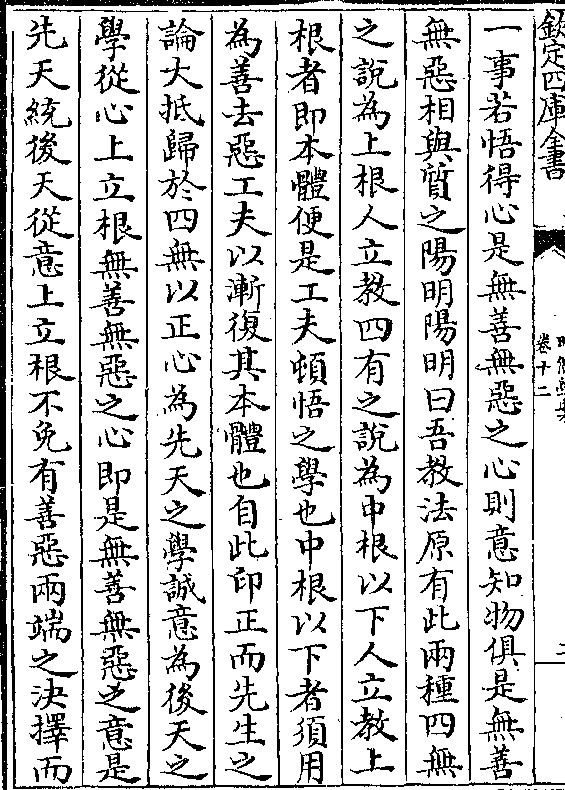 欽定四庫全書
卷十二
一事若悟得心是無善無惡之心則意知物俱是無善
無惡相與質之陽明陽明曰吾教法原有此兩種四無
之說為上根人立教四有之說為中根以下人立教上
根者即本體便是工夫頓悟之學也中根以下者須用
為善去惡工夫以漸復其本體也自此印正而先生之
論大抵歸於四無以正心為先天之學誠意為後天之
學從心上立根無善無惡之心即是無善無惡之意是
先天統後天從意上立根不免有善惡兩端之決擇而